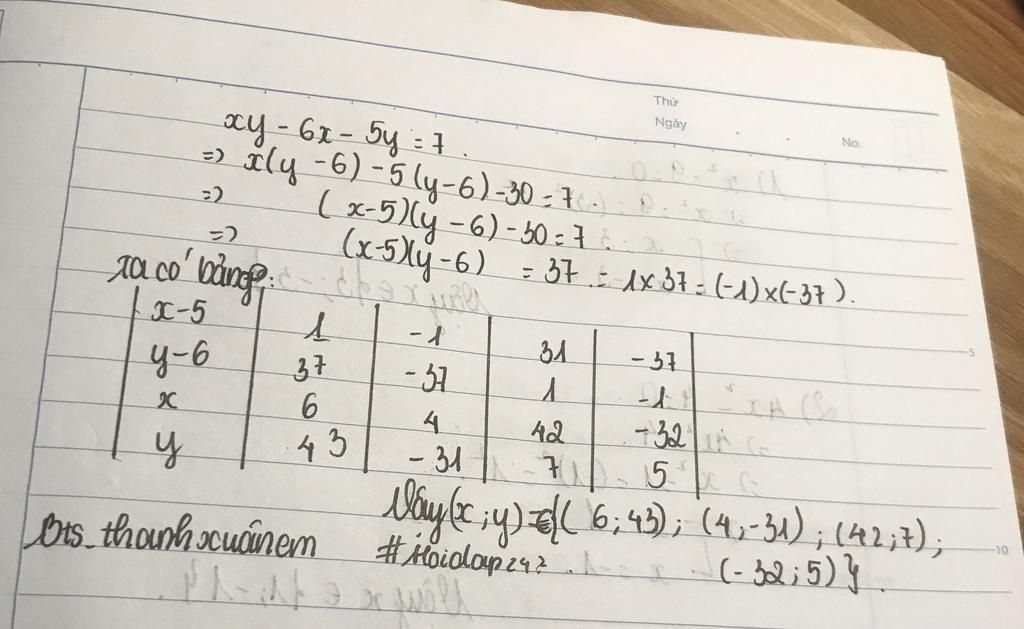 Thứ
Ngày
No.
xy - 6x - 5y = 7.
=> x(y - 6) - 5(y-6) - 30 = 7.
=> (x-5)(y-6) - 30 = 7.
=> (x-5)(y-6) = 37 = 1x37 = (-1)x(-37).
Ta có bảng:
x-5 1 -1 31 -37
y-6 37 -37 1 -1
x 6 4 42 -32
y 43 -31 7 5
5
Vậy (x;y) = {(6;43); (4;-31); (42;7);
Bts_thanhxuânem #Hoidap247. (-32;5)}.
10